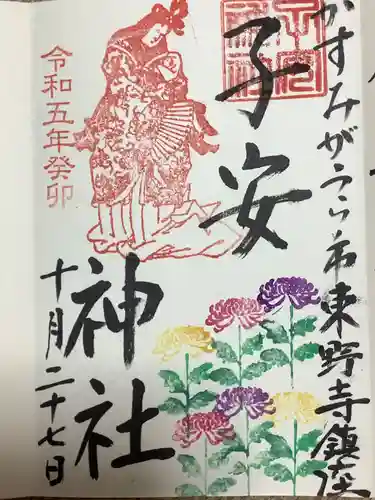 かすみがうら市東野寺鎮座
子安
神社
令和五年癸卯
十月二十七日